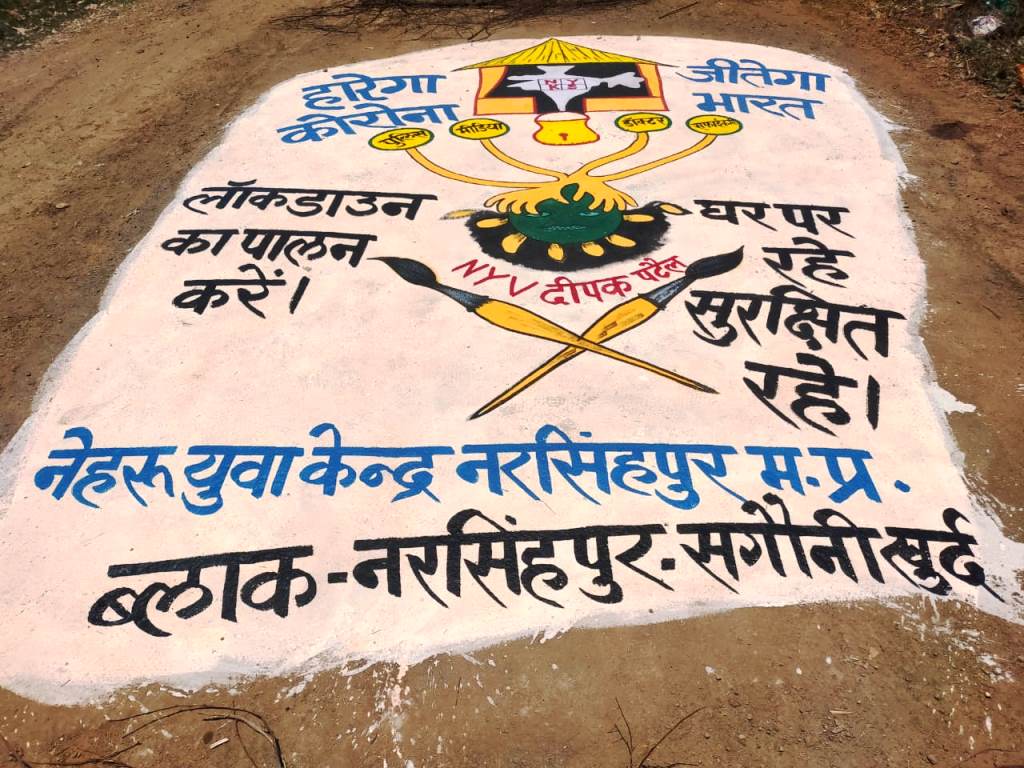 हारेगा
कोरोना
जीतेगा
भारत
N Y
K S
पुलिस
मीडिया
डॉक्टर
लॉकडाउन
का पालन
करें।
घर पर
रहे
सुरक्षित
रहे।
NYV दीपक पटैल
नेहरू युवा केन्द्र नरसिंहपुर म.प्र.
ब्लाक-नरसिंहपुर.सगौनी खुर्द